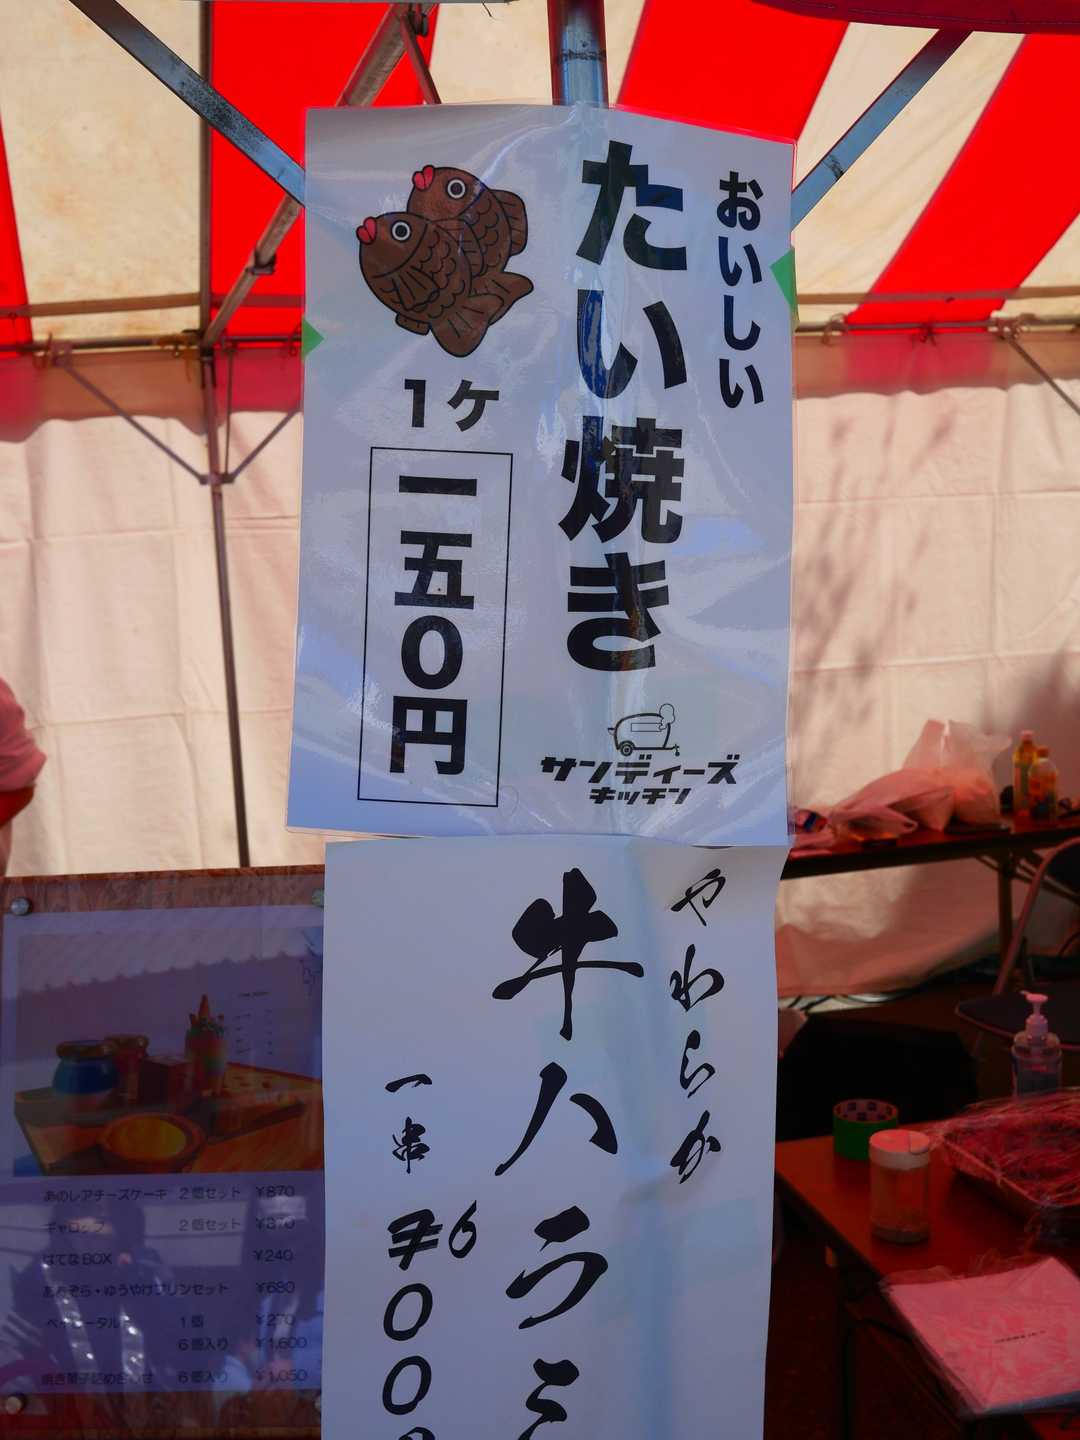 おいしい
たい焼き
1ケ
一五0円
サンディーズ
キッチン
やわらか
牛ハラミ
一串
6
00
あのレアチーズケーキ 2個セット ¥870
ギャロップ 2個セット ¥370
はてなBOX ¥240
あおぞら・ゆうやけプリンセット ¥680
1個 ¥270
6個入り ¥1,600
焼き菓子詰め合わせ 6個入り ¥1,050